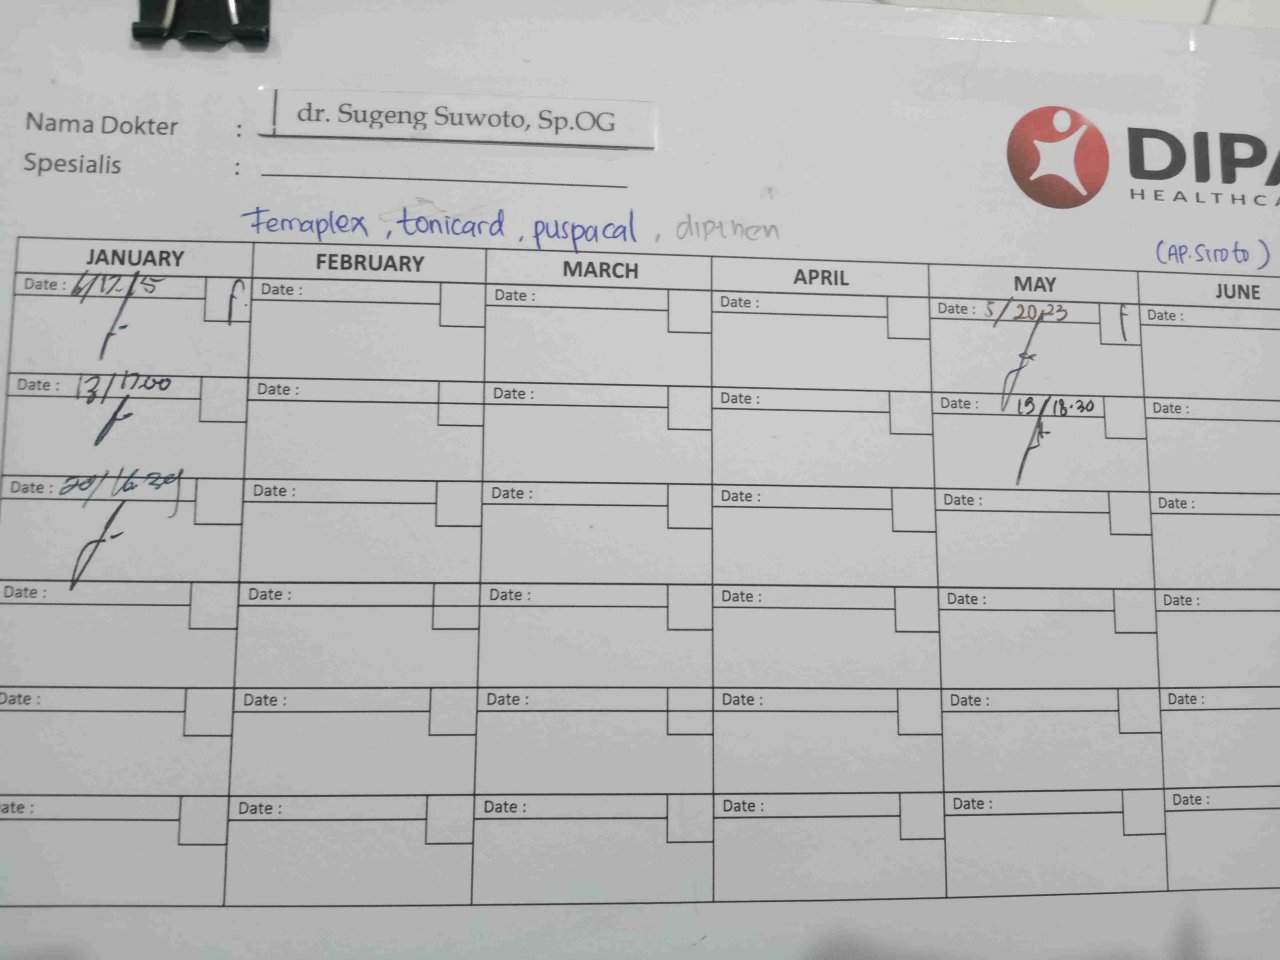 Nama Dokter : dr. Sugeng Suwoto, Sp.OG
Spesialis :
DIPA
HEALTHCA
Femaplex, tonicard, puspacal, dipinen
(AP. Siroto)
JANUARY FEBRUARY MARCH APRIL MAY JUNE
Date : 6/17.15 f. Date : Date : Date : Date : 5/20.23 f Date :
Date : 13/17.00 Date : Date : Date : Date : 19/18.30 Date :
Date : 20/16.30 Date : Date : Date : Date : Date :
Date : Date : Date : Date : Date : Date :
Date : Date : Date : Date : Date : Date :
ate : Date : Date : Date : Date : Date :